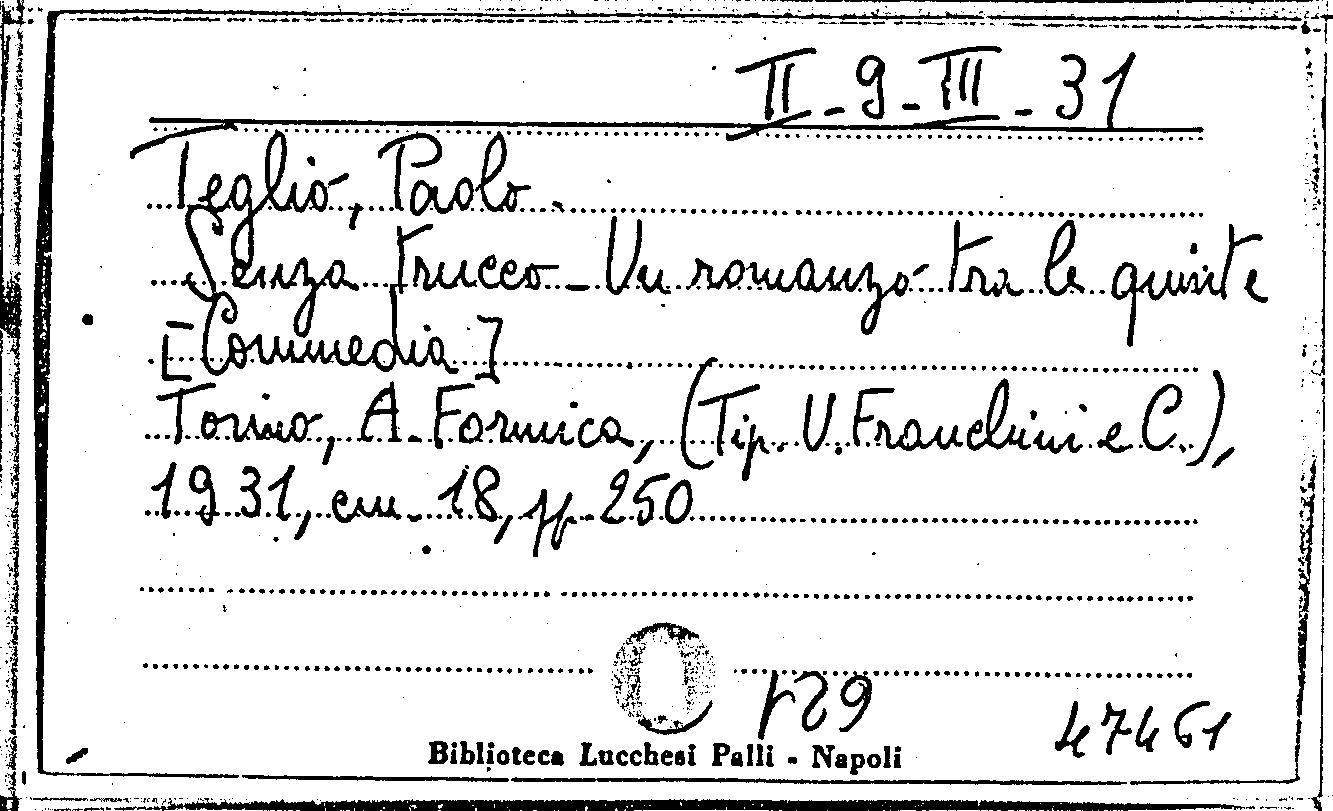 II - 9 - III - 31
Teglio, Paolo.
Senza trucco - Un romanzo tra le quinte
[Commedia]
Torino, A. Formica, (Tip. V. Franchini e C.),
1931, cm. 18, pp. 250
47461
Biblioteca Lucchesi Palli - Napoli